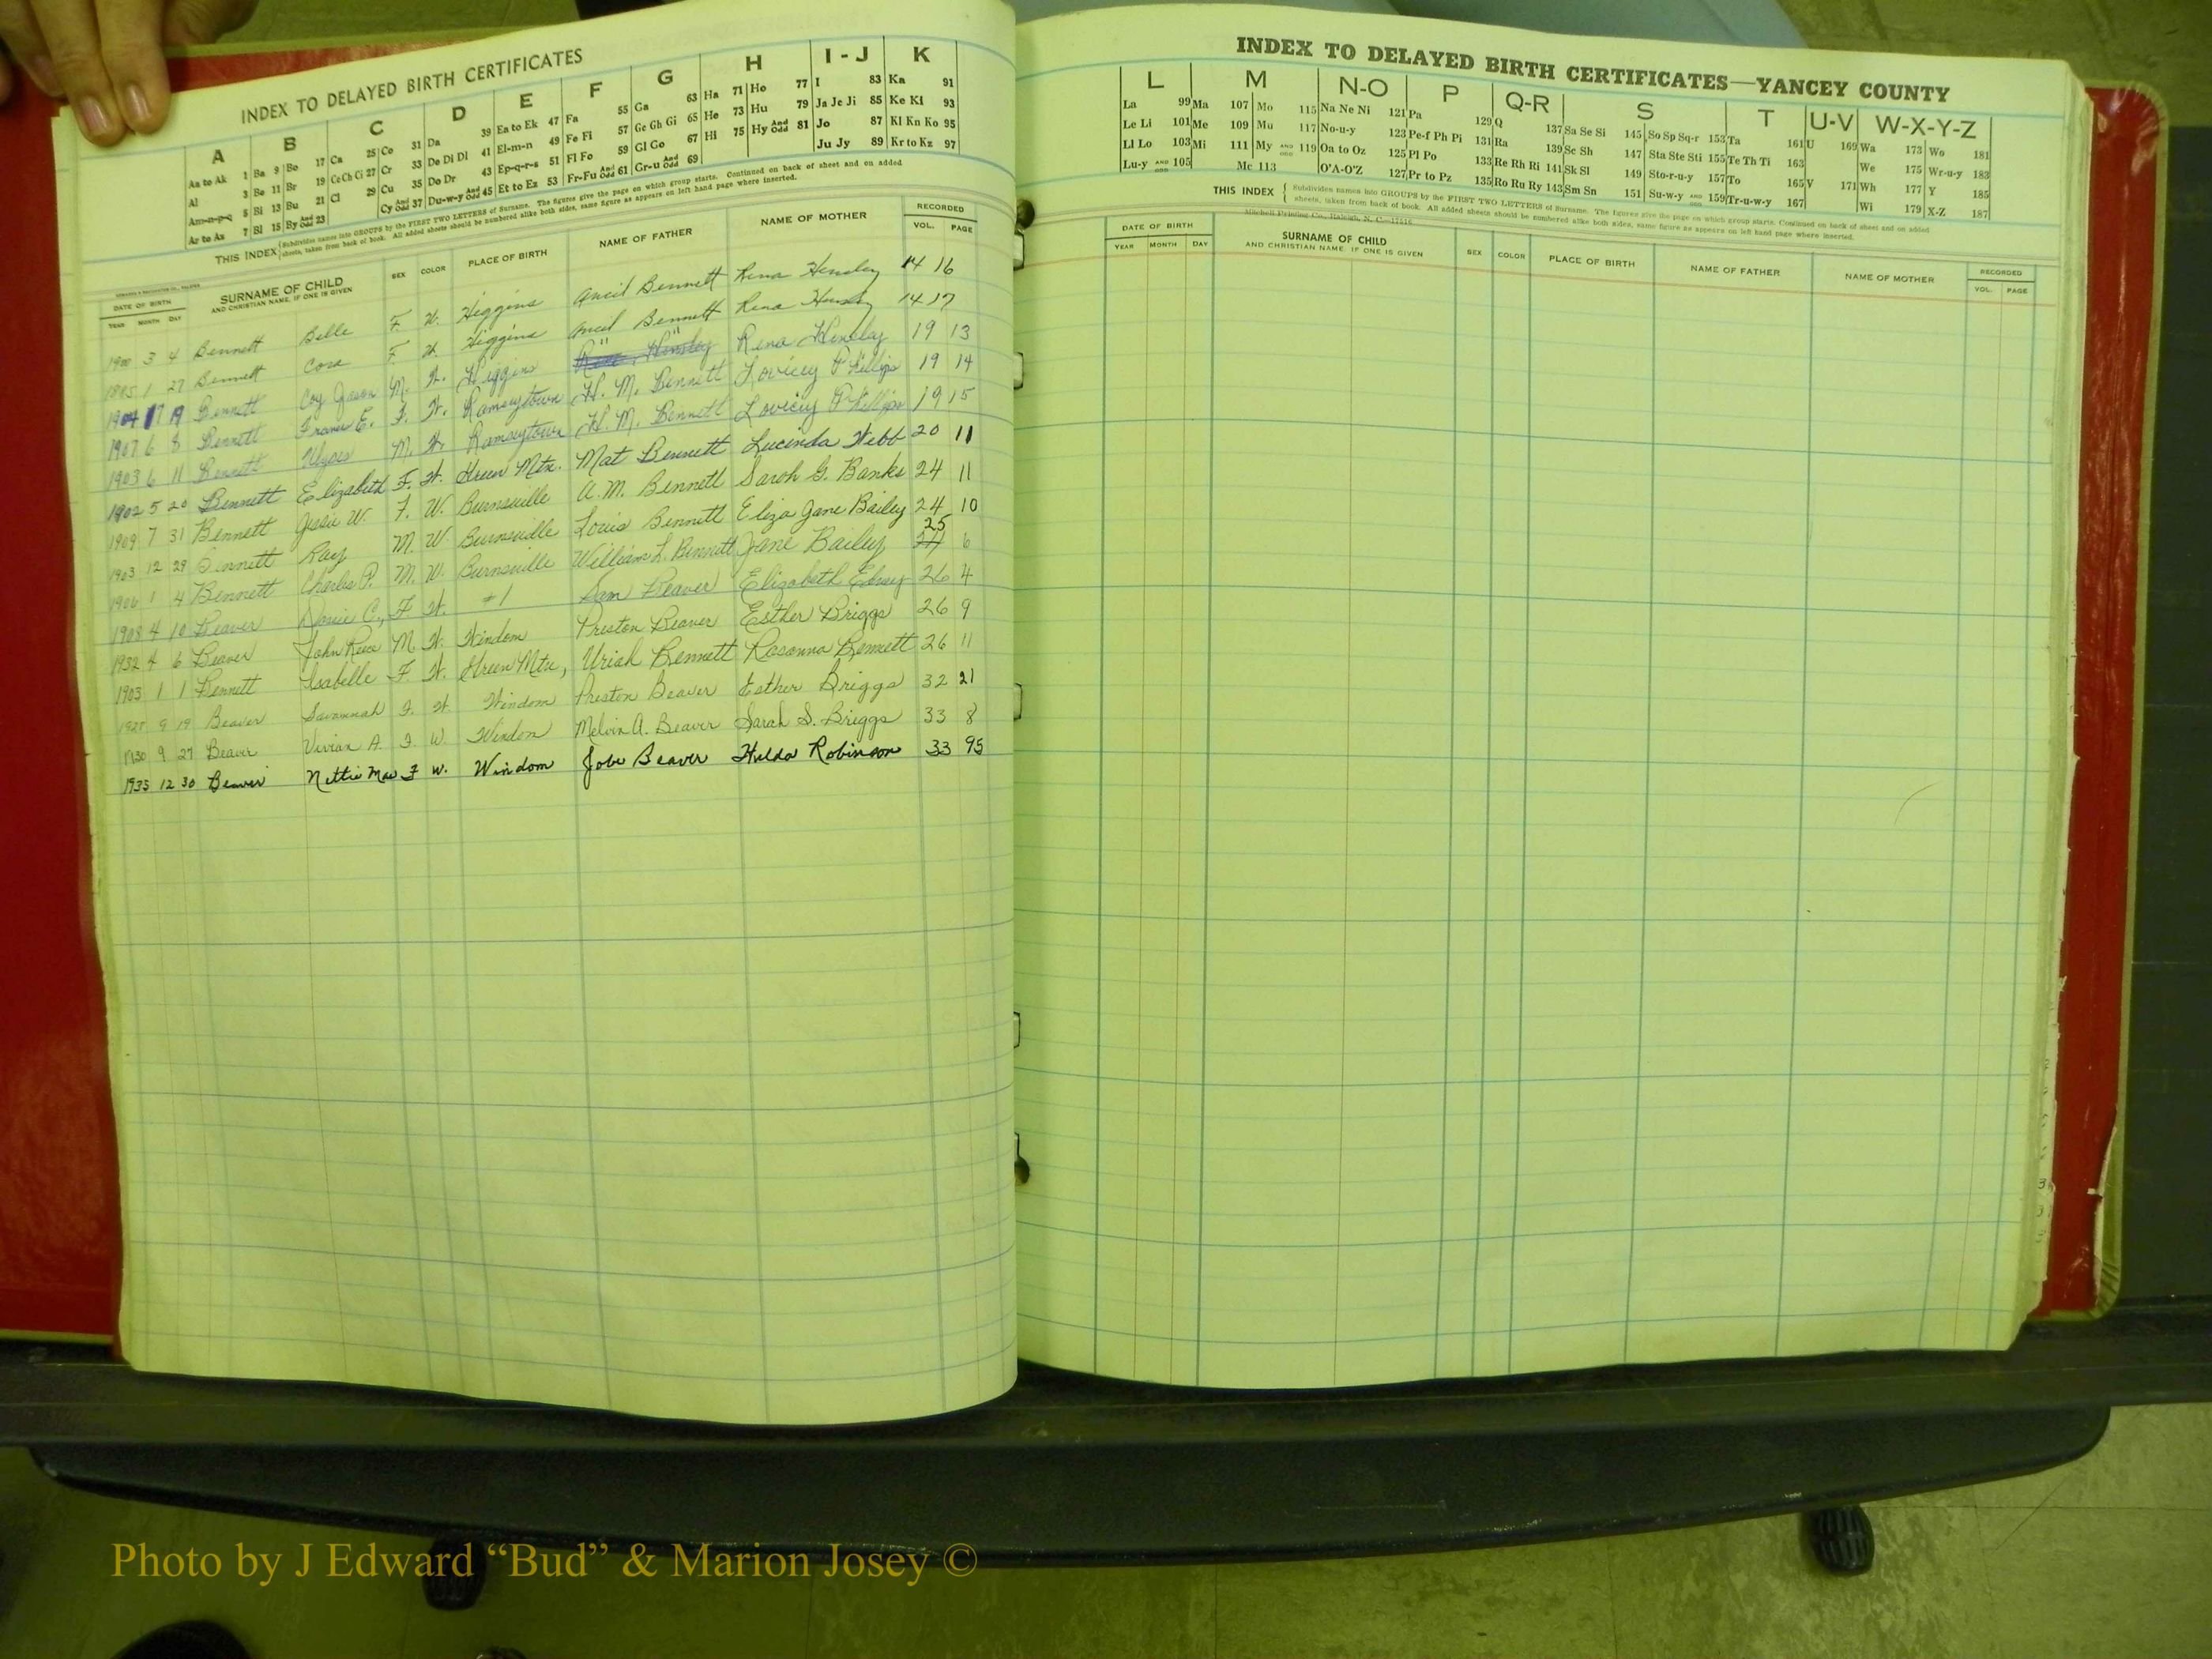 INDEX TO DELAYED BIRTH CERTIFICATES
A B C D E F G H I - J K
Aa to Ak 1 Ba 9 Bo 17 Ca 25 Co 31 Da 39 Ea to Ek 47 Fa 55 Ga 63 Ha 71 Ho 77 I 83 Ka 91
Al 3 Be 11 Br 19 Ce Ch Ci 27 Cr 33 De Di Dl 41 El-m-n 49 Fe Fi 57 Ge Gh Gi 65 He 73 Hu 79 Ja Je Ji 85 Ke Ki 93
Am-n-p-q 5 Bi 13 Bu 21 Cl 29 Cu 35 Do Dr 43 Ep-q-r-s 51 Fl Fo 59 Gl Go 67 Hi 75 Hy And Odd 81 Jo 87 Kl Kn Ko 95
Ar to Az 7 Bl 15 By And Odd 23 Cy And Odd 37 Du-w-y And Odd 45 Et to Ez 53 Fr-Fu And Odd 61 Gr-u And Odd 69 Ju Jy 89 Kr to Kz 97
THIS INDEX { Subdivides names into GROUPS by the FIRST TWO LETTERS of Surname. The figures give the page on which group starts. Continued on back of sheet and on added
sheets, taken from back of book. All added sheets should be numbered alike both sides, same figure as appears on left hand page where inserted.
DATE OF BIRTH SURNAME OF CHILD SEX COLOR PLACE OF BIRTH NAME OF FATHER NAME OF MOTHER RECORDED
YEAR MONTH DAY AND CHRISTIAN NAME, IF ONE IS GIVEN VOL. PAGE
1900 3 4 Bennett Belle F. W. Higgins Ancil Bennett Rena Hensley 14 16
1 27 Bennett Cora F W. Higgins Ancil Bennett Rena Hensley 14 17
1904 Bennett Coy Jason M. W. Higgins Hensley Rena Hensley 19 13
1907 6 8 Bennett E. F. W. Ramseytown H. M. Bennett Lovicey Phillips 19 14
1903 6 11 Bennett M. W. Ramseytown H. M. Bennett Lovicey Phillips 19 15
1902 5 20 Bennett Elizabeth F. W. Green Mtn. Mat Bennett Lucinda Webb 20 11
1909 7 31 Bennett Jessie W. F. W. Burnsville A. M. Bennett Sarah G. Banks 24 11
1903 12 29 Bennett Ray M W. Burnsville Louis Bennett Eliza Jane Bailey 24 10
1906 1 4 Bennett Charlie P. M. W. Burnsville William L. Bennett Jane Bailey 25 6
1908 4 10 Beaver C., F. W. #1 Sam Beaver Elizabeth 26 4
1932 4 6 Beaver John Reece M. W. Windom Preston Beaver Esther Briggs 26 9
1903 1 1 Bennett Isabelle F. W. Green Mtn, Uriah Bennett Rosanna Bennett 26 11
9 19 Beaver Savannah F. W. Windom Preston Beaver Esther Briggs 32 21
1930 9 27 Beaver Vivian A. F. W. Windom Melvin A. Beaver Sarah S. Briggs 33 8
1935 12 30 Beaver Nettie Mae F W. Windom Jobe Beaver Hulda Robinson 33 95
INDEX TO DELAYED BIRTH CERTIFICATES—YANCEY COUNTY
L M N-O P Q-R S T U-V W-X-Y-Z
La 99 Ma 107 Mo 115 Na Ne Ni 121 Pa 129 Q 137 Sa Se Si 145 So Sp Sq-r 153 Ta 161 U 169 Wa 173 Wo 181
Le Li 101 Me 109 Mu 117 No-u-y 123 Pe-f Ph Pi 131 Ra 139 Sc Sh 147 Sta Ste Sti 155 Te Th Ti 163 We 175 Wr-u-y 183
Ll Lo 103 Mi 111 My AND ODD 119 Oa to Oz 125 Pl Po 133 Re Rh Ri 141 Sk Sl 149 Sto-r-u-y 157 To 165 V 171 Wh 177 Y 185
Lu-y AND ODD 105 Mc 113 O'A-O'Z 127 Pr to Pz 135 Ro Ru Ry 143 Sm Sn 151 Su-w-y AND ODD 159 Tr-u-w-y 167 Wi 179 X-Z 187
THIS INDEX { Subdivides names into GROUPS by the FIRST TWO LETTERS of Surname. The figures give the page on which group starts. Continued on back of sheet and on added
sheets, taken from back of book. All added sheets should be numbered alike both sides, same figure as appears on left hand page where inserted.
Mitchell Printing Co., Raleigh, N. C.
DATE OF BIRTH SURNAME OF CHILD SEX COLOR PLACE OF BIRTH NAME OF FATHER NAME OF MOTHER RECORDED
YEAR MONTH DAY AND CHRISTIAN NAME, IF ONE IS GIVEN VOL. PAGE
Photo by J Edward “Bud” & Marion Josey ©